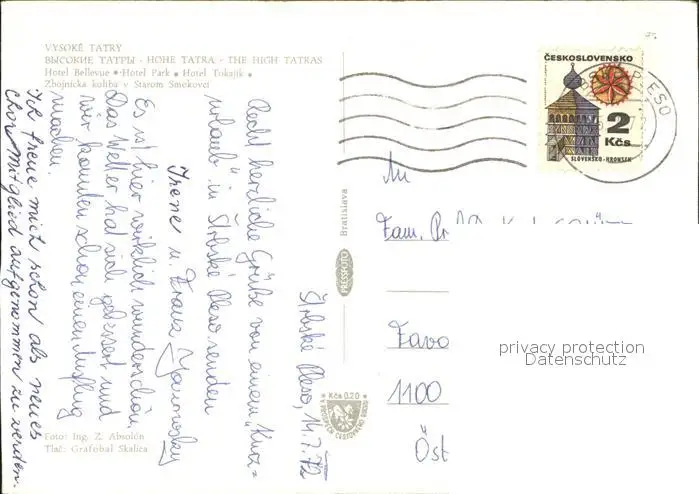 VYSOKÉ TATRY
ВЫСОКИЕ ТАТРЫ - HOHE TATRA - THE HIGH TATRAS
Hotel Bellevue • Hotel Park • Hotel Tokajík •
Zbojnícka koliba v Starom Smokovci
Štrbské Pleso, 14.7.72
Recht herzliche Grüße von einem „Kurz-
urlaub" in Štrbské Pleso senden
Irene u Franz
Es ist hier wirklich wunderschön,
Das Wetter hat sich gebessert und
wir konnten schon einen Ausflug
machen.
Ich freue mich schon als neues
Chormitglied aufgenommen zu werden.
Foto: Ing. Z. Absolón
Tlač: Grafobal Skalica
Bratislava
PRESSFOTO
Kčs 0.20
ČESKOSLOVENSKO
2
Kčs
SLOVENSKO-HRONSEK
PLESO
An
Fam.
1100
Öst
privacy protection
Datenschutz